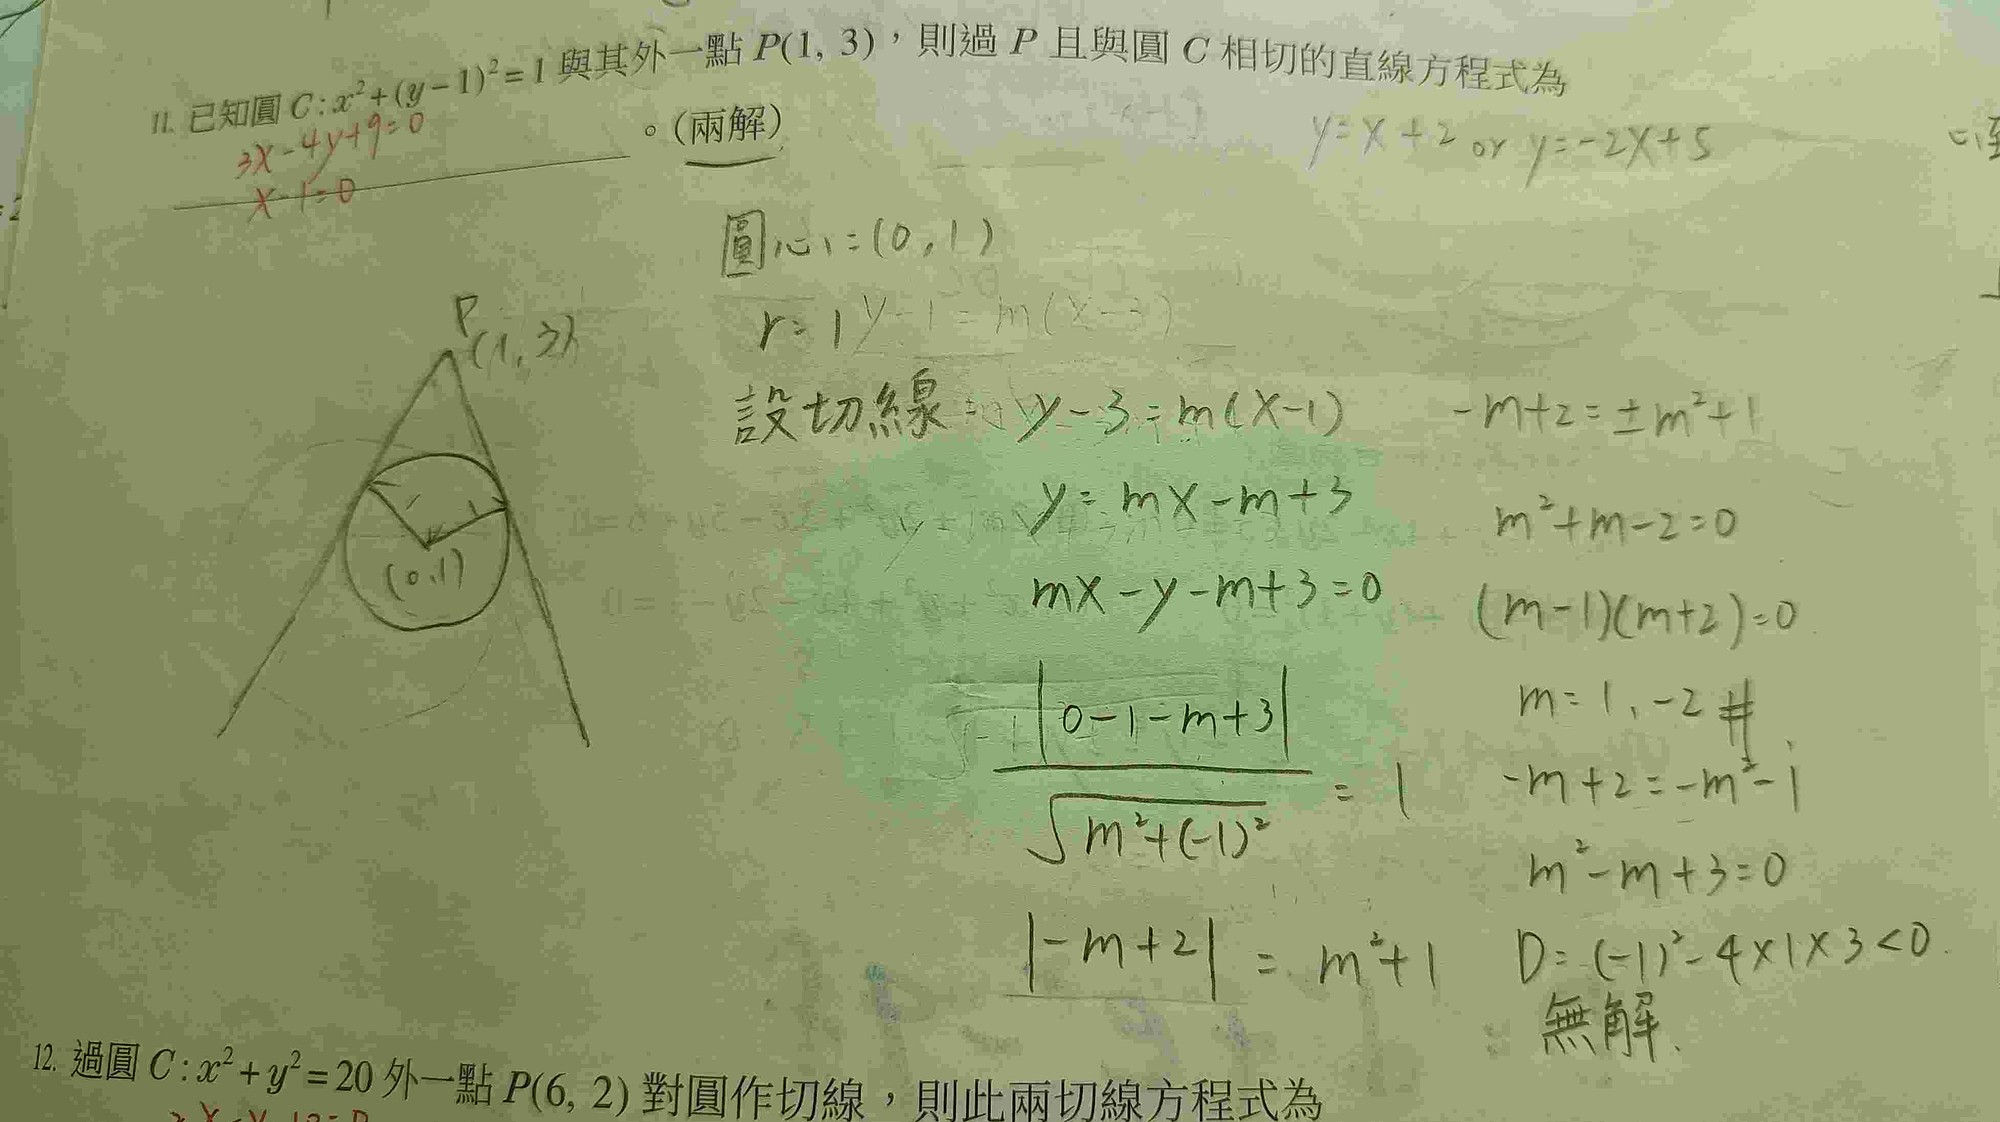 11. 已知圓 C：x²+(y－1)²=1 與其外一點 P(1, 3)，則過 P 且與圓 C 相切的直線方程式為
3x-4y+9=0
x-1=0
。(兩解)
y=x+2 or y=-2x+5
圓心:(0,1)
r=1
y-1=m(x-3)
P
(1,3)
1
1
(0,1)
設切線: y-3=m(x-1)
y=mx-m+3
mx-y-m+3=0
|0-1-m+3|
√m²+(-1)²
=1
|-m+2| = m²+1
-m+2=±m²+1
m²+m-2=0
(m-1)(m+2)=0
m=1,-2 #
-m+2=-m²-1
m²-m+3=0
D=(-1)²-4×1×3<0
無解.
12. 過圓 C：x²+y²=20 外一點 P(6, 2) 對圓作切線，則此兩切線方程式為